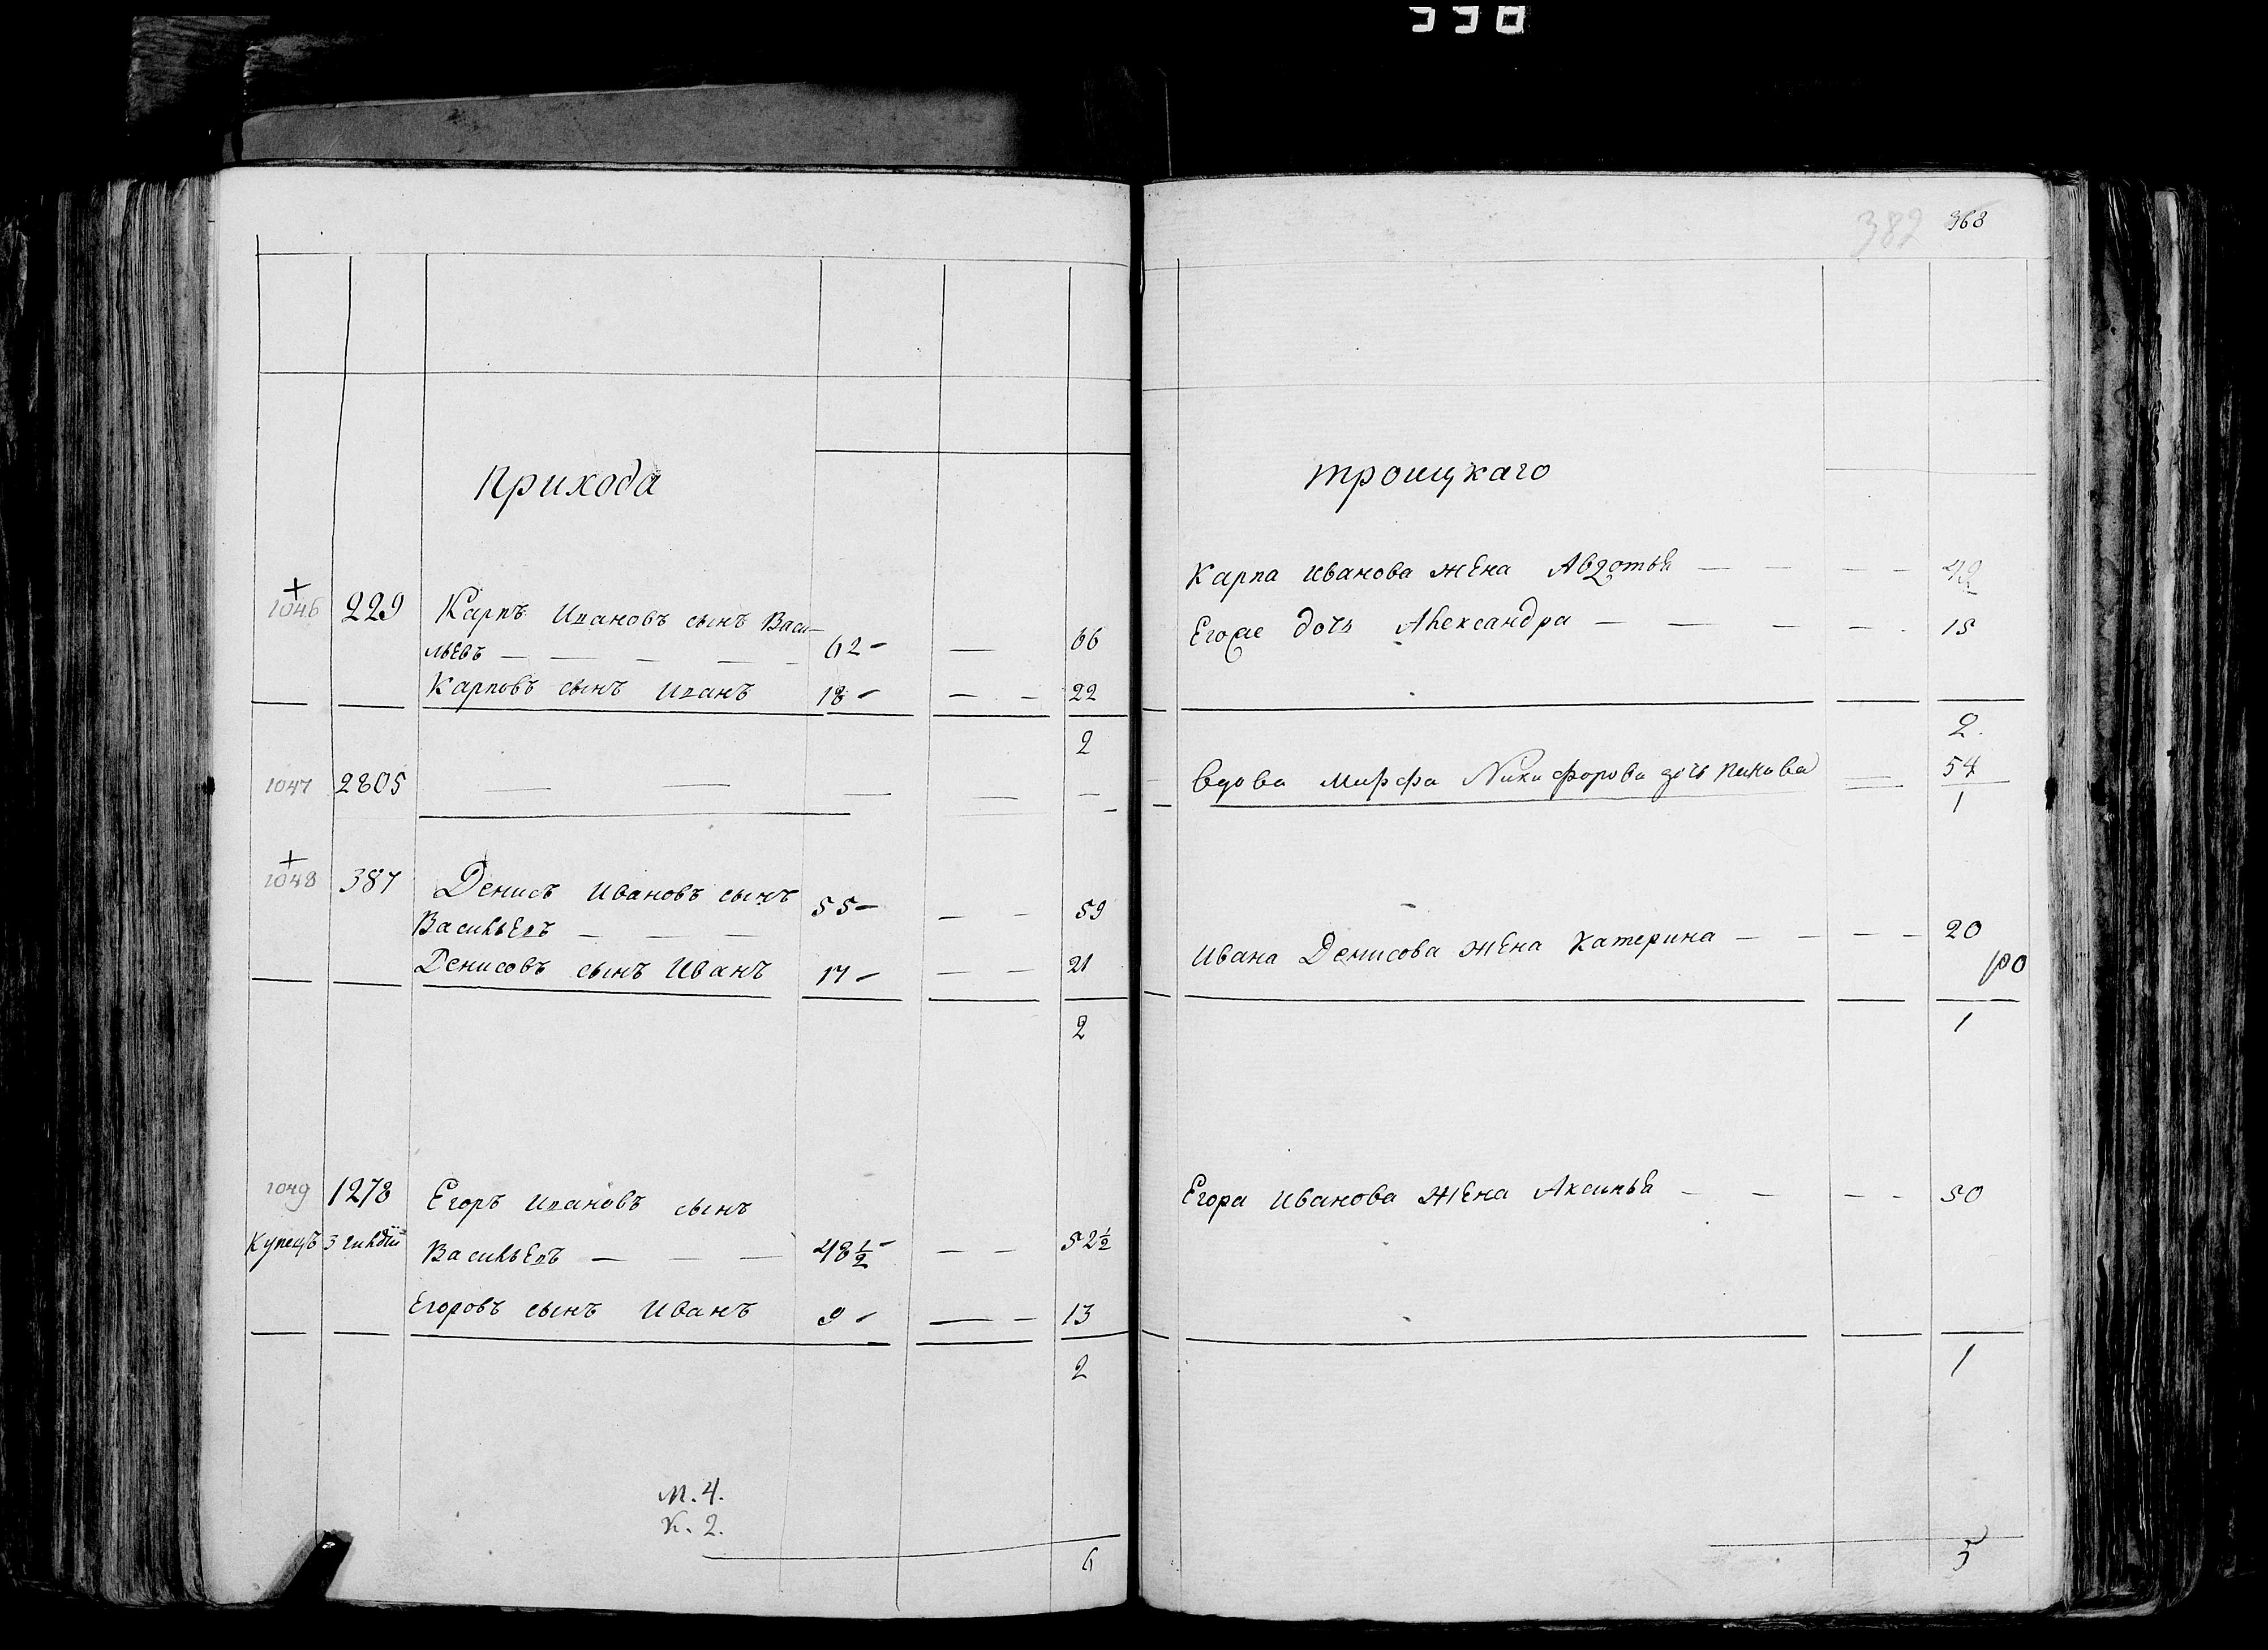 330
прихода
1046 229 Карпъ Ивановъ сынъ Васи-
льевъ — — — — — 62 — — 66
Карповъ сынъ Иванъ 18 — — — 22
2
1047 2805 — — — — —
1048 387 Денисъ Ивановъ сынъ
Васильевъ — — — 55 — — — 59
Денисовъ сынъ Иванъ 17 — — — 21
2
1049 1278 Егоръ Ивановъ сынъ
Купецъ 3 гилдіи Васильевъ — — — 48 1/2 — — — 52 1/2
Егоровъ сынъ Иванъ 9 — — — 13
2
М. 4.
К. 2.
6
382 368
троицкаго
Карпа Иванова жена Авдотья — — — — 42
Егоже дочь Александра — — — — 15
2.
Вдова Марфа Никифорова дочь Пикова 54
1
Ивана Денисова жена Катерина — — — — 20
1
Егора Иванова жена Аксинья — — — — 50
1
5